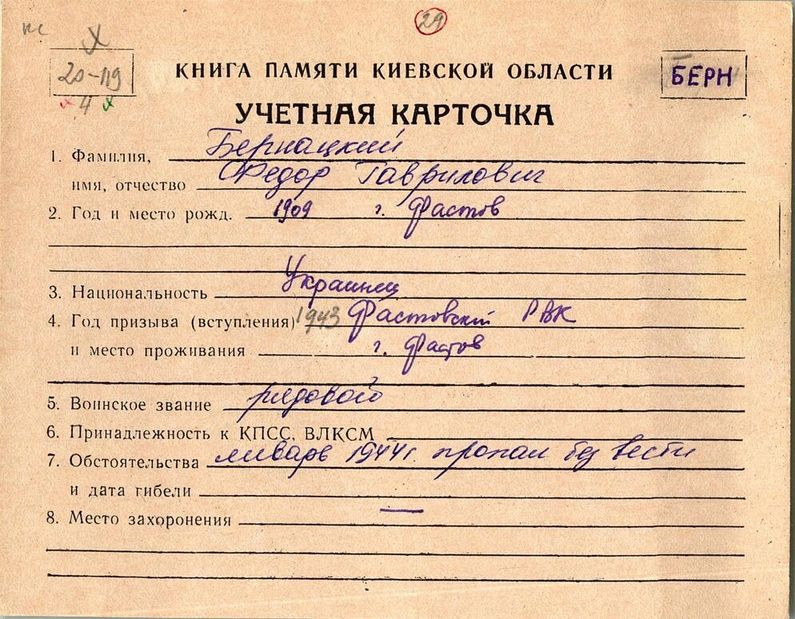 29
20-119
4
КНИГА ПАМЯТИ КИЕВСКОЙ ОБЛАСТИ
БЕРН
УЧЕТНАЯ КАРТОЧКА
1. Фамилия, Бернацкий
имя, отчество Федор Гаврилович
2. Год и место рожд. 1909 г. Фастов
3. Национальность Украинец
4. Год призыва (вступления) 1943 Фастовский РВК
и место проживания г. Фастов
5. Воинское звание рядового
6. Принадлежность к КПСС, ВЛКСМ
7. Обстоятельства январь 1944г. пропал без вести
и дата гибели
8. Место захоронения —